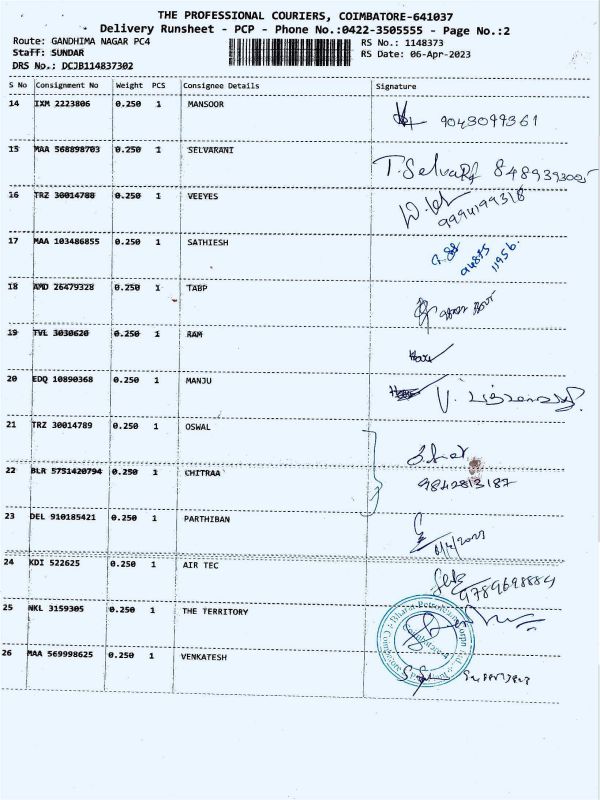 THE PROFESSIONAL COURIERS, COIMBATORE-641037
Delivery Runsheet - PCP - Phone No.:0422-3505555 - Page No.:2
Route: GANDHIMA NAGAR PC4 RS No.: 1148373
Staff: SUNDAR RS Date: 06-Apr-2023
DRS No.: DCJB114837302
S No Consignment No Weight PCS Consignee Details Signature
14 IXM 2223806 0.250 1 MANSOOR 9043099361
15 MAA 568898703 0.250 1 SELVARANI T.Selva
16 TRZ 30014788 0.250 1 VEEYES 9994199318
17 MAA 103486855 0.250 1 SATHIESH 94875 11956
18 AMD 26479328 0.250 1 TABP
19 TVL 3030620 0.250 1 RAM
20 EDQ 10890368 0.250 1 MANJU
21 TRZ 30014789 0.250 1 OSWAL
22 BLR 5751420794 0.250 1 CHITRAA 9842813187
23 DEL 910185421 0.250 1 PARTHIBAN
24 KDI 522625 0.250 1 AIR TEC 9789698884
25 NKL 3159305 0.250 1 THE TERRITORY
26 MAA 569998625 0.250 1 VENKATESH